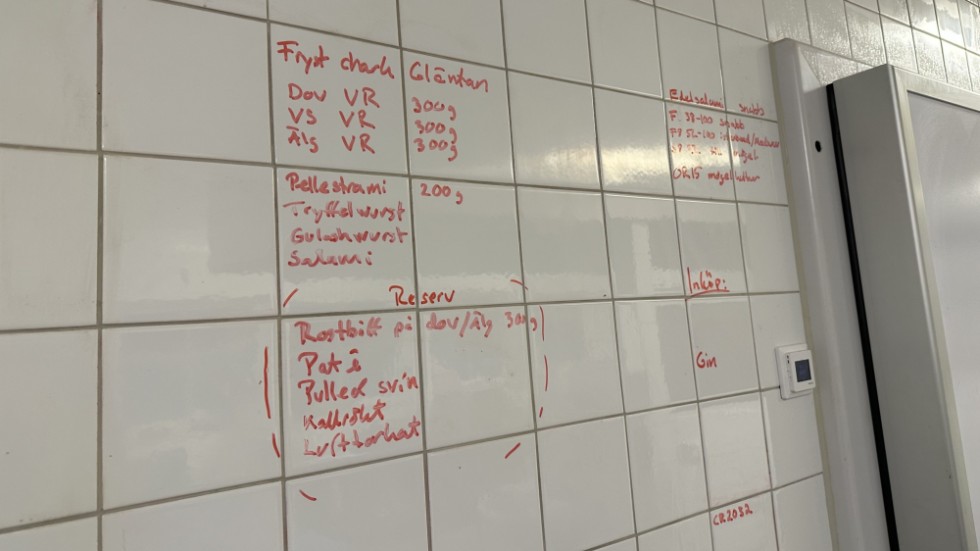 Fryst chark Gläntan
Dov VR 300g
VS VR 300g
Älg VR 300g
Pellestrami 200g
Tryffelwurst
Gulashwurst
Salami
Reserv
Rostbiff på dov/älg 300g
Paté
Pulled svin
Kallrökt
Lufttorkat
Edelsalami snabb
F. 38-100 snabb
OR15 mögelkultur
Inköp:
Gin
CR2032